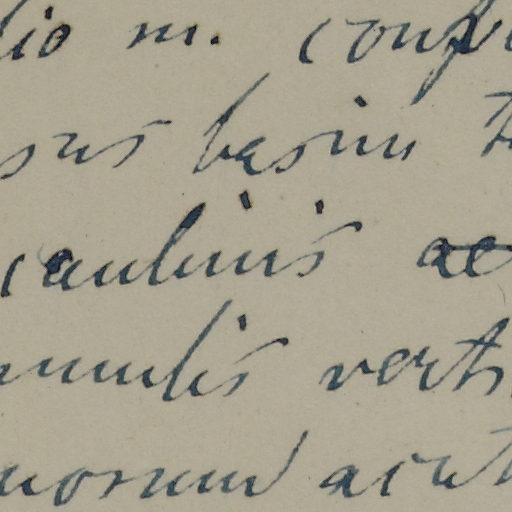 lio m. conf
sus basim t
caulinis ac
nnulis verti
uorum acut